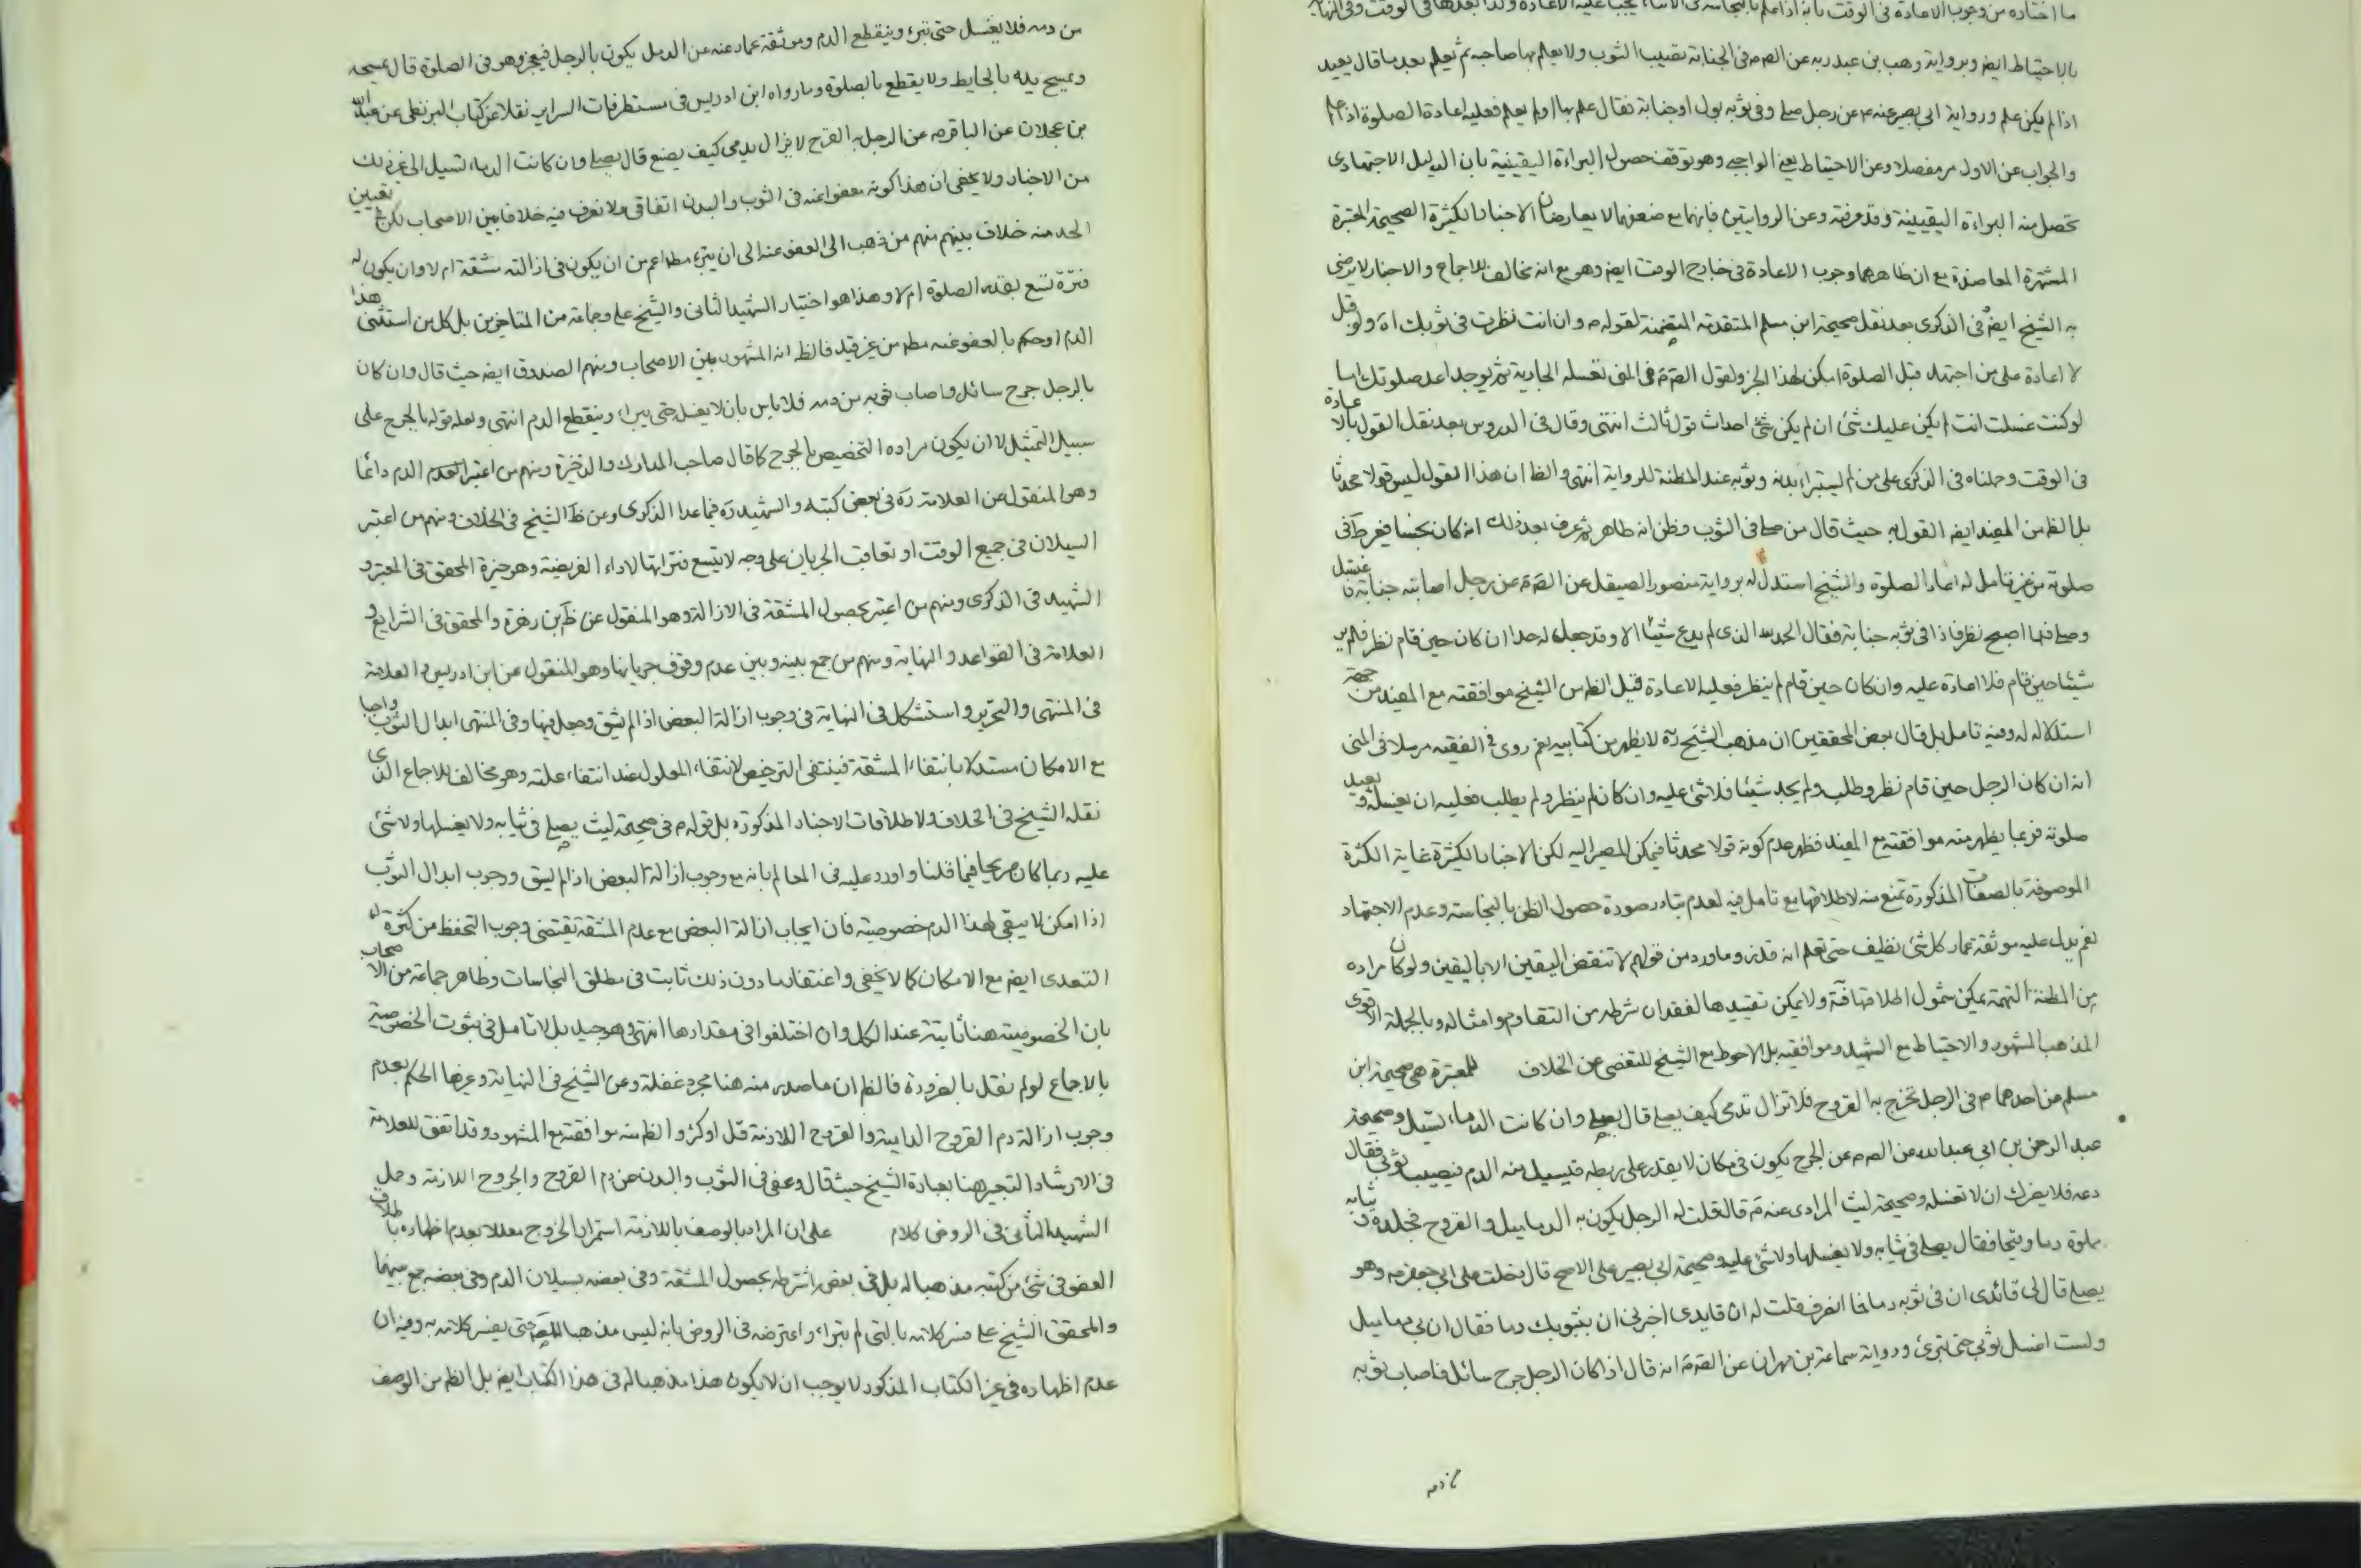 ما اختاره من وجوب الاعادة فى الوقت بانه اذا علم بالنجاسة فى الاثناء يجب عليه الاعادة وكذا بعدها فى الوقت وفى النهاية
بالاحتياط ايضا وبرواية وهب بن عبد ربه عن الصم فى الجنابة تصيب الثوب ولا يعلم بها صاحبه ثم يعلم بعد ما قال يعيد
اذا لم يكن علم ورواية ابى بصير عنه ع عن رجل صلى وفى ثوبه بول او جنابة فقال علم بها او لم يعلم فعليه اعادة الصلوة اذا علم
والجواب عن الاول مر مفصلا وعن الاحتياط يعنى الواجب وهو توقف حصول البراءة اليقينية بان الدليل الاجتهادى
تحصل منه البراءة اليقينية وقد عرفته وعن الروايتين فانهما مع ضعفهما لا يعارضان الاخبار الكثيرة الصحيحة المعتبرة
المشتهرة المعاضدة مع ان ظاهرهما وجوب الاعادة فى خارج الوقت ايضا وهو مع انه مخالف للاجماع والاخبار لا يرضى
به الشيخ ايضا فى الذكرى بعد نقل صحيحة ابن مسلم المتقدمة المتضمنة لقوله م وان انت نظرت فى ثوبك اه ولو قيل
لا اعادة على من اجتهد قبل الصلوة امكن لهذا الخبر ولقول الصم فى المنى تغسله الجارية ثم يوجد اعد صلوتك اما
لو كنت غسلت انت لم يكن عليك شئ ان لم يكن شئ احداث قول ثالث انتهى وقال فى الدروس بعد نقل القول بالاعادة
فى الوقت وحملناه فى الذكرى على من لم يستبرء بدنه وثوبه عند المظنة للرواية انتهى والظ ان هذا القول ليس قولا محدثا
بل الظ من المفيد ايضا القول به حيث قال من صلى فى الثوب وظن انه طاهر ثم عرف بعد ذلك انه كان نجسا ففرط فى
صلوته من غير تامل له اعاد الصلوة والشيخ استدل له برواية منصور الصيقل عن الصم عن رجل اصابته جنابة فاغتسل
وصلى فلما اصبح نظر فاذا فى ثوبه جنابة فقال الحمد لله الذى لم يدع شيئا الا وقد جعل له حدا ان كان حين قام نظر فلم ير
شيئا حين قام فلا اعادة عليه وان كان حين قام لم ينظر فعليه الاعادة قيل الظ من الشيخ موافقته مع المفيد من جهة
استدلاله له وفيه تامل بل قال بعض المحققين ان مذهب الشيخ ره لا يظهر من كتابيه نعم روى فى الفقيه مرسلا فى المنى
انه ان كان الرجل حين قام نظر وطلب ولم يجد شيئا فلا شئ عليه وان كان لم ينظر ولم يطلب فعليه ان يغسله ويعيد
صلوته فربما يظهر منه موافقته مع المفيد فظهر عدم كونه قولا محدثا فيمكن المصير اليه لكن الاخبار الكثيرة غاية الكثرة
الموصوفة بالصفات المذكورة تمنع منه لاطلاقها مع تامل فيه لعدم تبادر صورة حصول الظن بالنجاسة وعدم الاجتهاد
نعم يدل عليه موثقة عمار كل شئ نظيف حتى تعلم انه قذر وما ورد من قولهم لا تنقض اليقين الا باليقين ولو كان مراده
من المظنة التهمة يمكن شمول اطلاقها فته ولا يمكن تقييدها لفقدان شرطه من التقاوم وامثاله وبالجملة الاقوى
المذهب المشهور والاحتياط مع الشهيد وموافقيه بل الاحوط مع الشيخ للتفصى عن الخلاف للمعتبرة هى صحيحة ابن
مسلم عن احدهما م فى الرجل تخرج به القروح فلا تزال تدمى كيف يصلى قال يصلى وان كانت الدماء تسيل وصحيحة
عبد الرحمن بن ابى عبد الله عن الصم عن الجرح يكون فى مكان لا يقدر على ربطه فيسيل منه الدم فيصيب ثوبى فقال
دعه فلا يضرك ان لا تغسله وصحيحة ليث المرادى عنه م قال قلت له الرجل يكون به الدماميل والقروح فجلده وثيابه
مملوة دما وقيحا فقال يصلى فى ثيابه ولا يغسلها ولا شئ عليه وصحيحة ابى بصير على الاصح قال دخلت على ابى جعفر م وهو
يصلى قال لى قائدى ان فى ثوبه دما فلما انصرف قلت له ان قايدى اخبرنى ان بثوبك دما فقال ان بى دماميل
ولست اغسل ثوبى حتى تبرئ ورواية سماعة بن مهران عن الصم انه قال اذا كان الرجل جرح سائل فاصاب ثوبه
من دمه
من دمه فلا يغسل حتى تبرء وينقطع الدم وموثقة عمار عنه عن الدمل يكون بالرجل فينفجر وهو فى الصلوة قال يمسحه
ويمسح يده بالحايط ولا يقطع بالصلوة وما رواه ابن ادريس فى مستطرفات السراير نقلا عن كتاب البزنطى عن عبد الله
بن عجلان عن الباقر م عن الرجل به القرح لا يزال يدمى كيف يصنع قال يصلى وان كانت الدماء تسيل الى غير ذلك
من الاخبار ولا يخفى ان هذا كونه معفوا عنه فى الثوب والبدن اتفاقى ولا نعرف فيه خلافا بين الاصحاب لكن فى تعيين
الحد منه خلاف بينهم منهم من ذهب الى العفو عنه الى ان يبرء مطلا اعم من ان يكون فى ازالته مشقة ام لا وان يكون له
فترة تسع بقدر الصلوة ام لا وهذا هو اختيار الشهيد الثانى والشيخ على وجماعة من المتاخرين بل كل من استثنى هذا
الدم او حكم بالعفو عنه مطلا من غير قيد فالظ انه المشهور بين الاصحاب ومنهم الصدوق ايضا حيث قال وان كان
بالرجل جرح سائل واصاب ثوبه من دمه فلا باس بان لا يغسل حتى يبراء وينقطع الدم انتهى ولعله قوله بالجرح على
سبيل التمثيل لا ان يكون مراده التخصيص بالجرح كما قال صاحب المدارك والذخيرة ومنهم من اعتبر الدم دائما
وهو المنقول عن العلامة ره فى بعض كتبه والشهيد ره فيما عدا الذكرى وعن ظ الشيخ فى الخلاف ومنهم من اعتبر
السيلان فى جميع الوقت او تعاقب الجريان على وجه لا يتسع فتراتها لاداء الفريضة وهو خيرة المحقق فى المعتبر و
الشهيد فى الذكرى ومنهم من اعتبر بحصول المشقة فى الازالة وهو المنقول عن ظ بن زهرة والمحقق فى الشرايع و
العلامة فى القواعد والنهاية ومنهم من جمع بينه وبين عدم وقوف جريانها وهو المنقول عن ابن ادريس والعلامة
فى المنتهى والتحرير واستشكل فى النهاية فى وجوب ازالة البعض اذا لم يشق وجعل فيها وفى المنتهى ابدال الثوب واجبا
مع الامكان مستدلا بانتفاء المشقة فينتفى الترخيص لانتفاء المعلول عند انتفاء علته وهو مخالف للاجماع الذى
نقله الشيخ فى الخلاف ولاطلاقات الاخبار المذكورة بل قوله م فى صحيحة ليث يصلى فى ثيابه ولا يغسلها ولا شئ
عليه ربما كان صريحا فيما قلنا واورد عليه فى المعالم بانه مع وجوب ازالة البعض اذا لم يشق ووجوب ابدال الثوب
اذا امكن لا يبقى لهذا الدم خصوصية فان ايجاب ازالة البعض مع عدم المشقة يقتضى وجوب التحفظ من كثرة
التعدى ايضا مع الامكان كما لا يخفى واغتفار ما دون ذلك ثابت فى مطلق النجاسات وظاهر جماعة من الاصحاب
بان الخصوصية هنا ثابتة عند الكل وان اختلفوا فى مقدارها انتهى وهو جيد بل لا تامل فى ثبوت الخصوصية
بالاجماع لو لم نقل بالضرورة فالظ ان ما صدر منه هنا مجرد غفلة وعن الشيخ فى النهاية وغيرها الحكم بعدم
وجوب ازالة دم القروح الدامية والقروح اللازمة قل او كثر والظ منه موافقته مع المشهور وقد اتفق للعلامة
فى الارشاد التعبير هنا بعبارة الشيخ حيث قال وعفى فى الثوب والبدن عن دم القروح والجروح اللازمة وحمل
الشهيد الثانى فى الروض كلام على ان المراد بالوصف باللازمة استمرار الخروج معللا بعدم اظهاره باطلاق
العفو فى شئ من كتبه مذهبا له بل فى بعض اشترط بحصول المشقة وفى بعضه بسيلان الدم وفى بعضه جمع بينهما
والمحقق الشيخ على فسر كلامه بالتى لم يبراء واعترضه فى الروض بانه ليس مذهبا للمصم حتى يفسر كلامه به وفيه ان
عدم اظهاره فى غير الكتاب المذكور لا يوجب ان لا يكون هذا مذهبا له فى هذا الكتاب ايضا بل الظ من الوصف